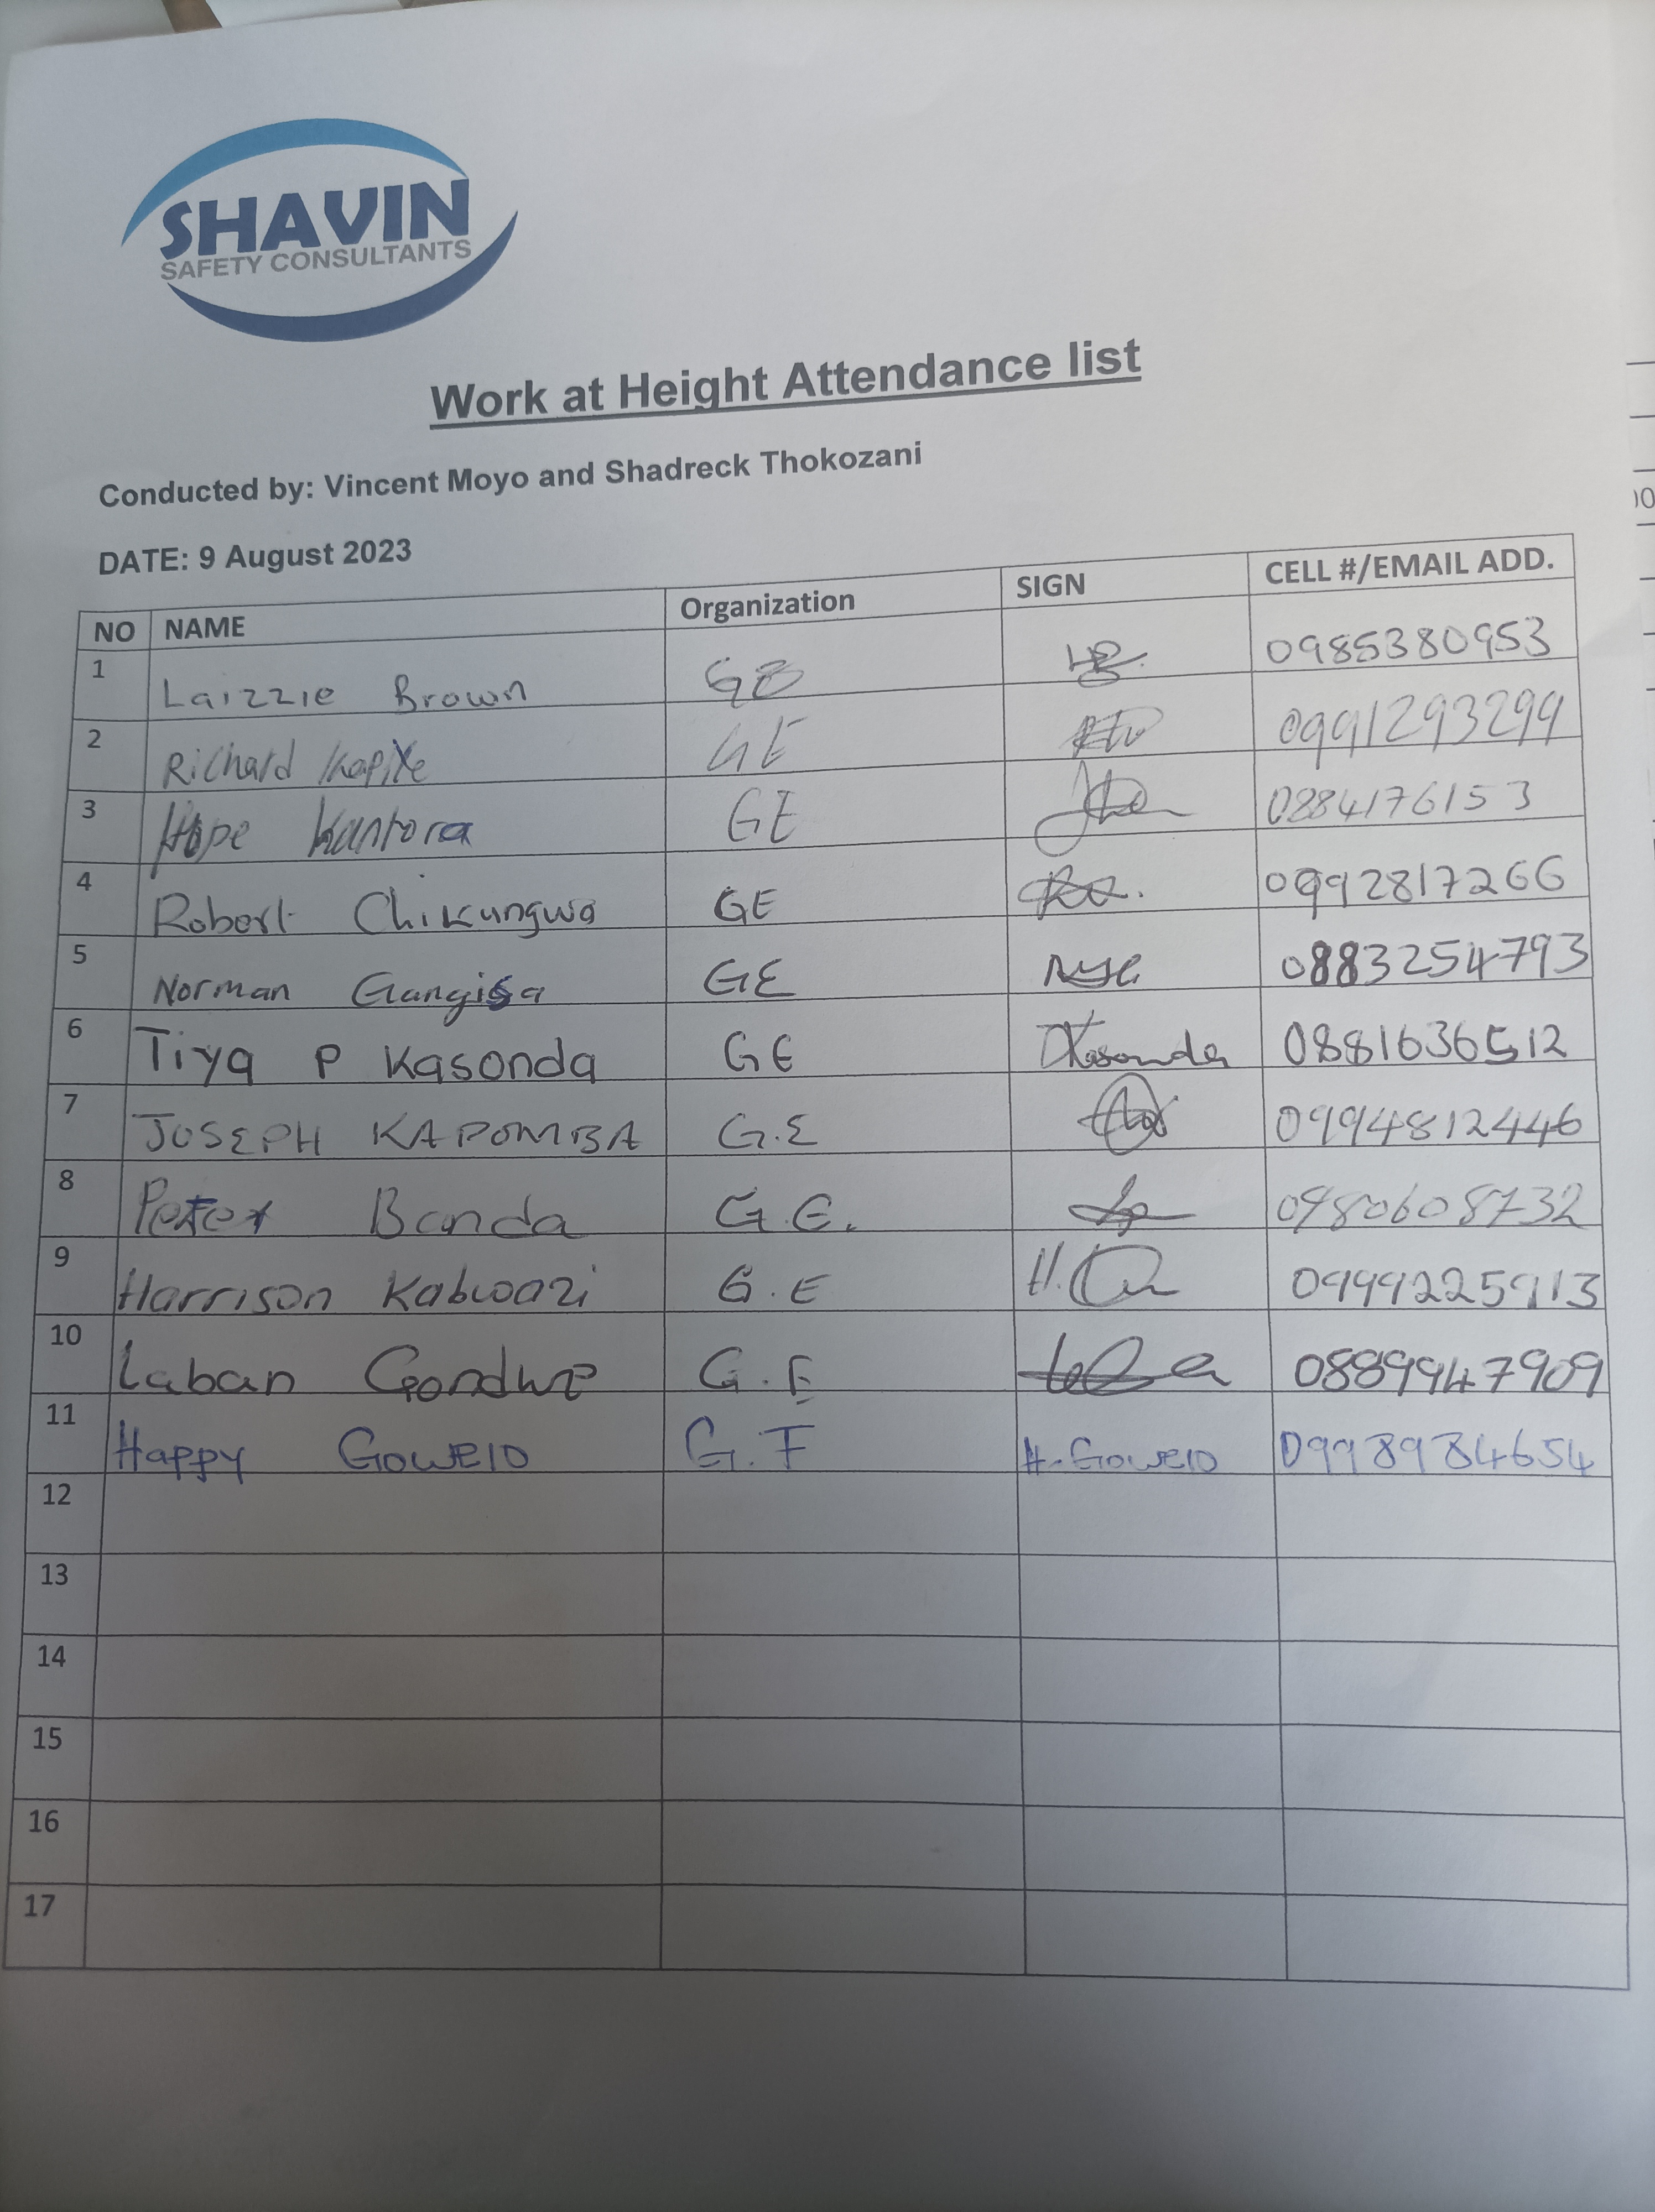 SHAVIN
SAFETY CONSULTANTS
Work at Height Attendance list
Conducted by: Vincent Moyo and Shadreck Thokozani
DATE: 9 August 2023
NO NAME Organization SIGN CELL #/EMAIL ADD.
1 Laizzie Brown 0985380953
2 Richard GE 0991293299
3 Hope Kantora GE 0884176153
4 Robert Chikungwa GE 0992817266
5 Norman Gangisa GE 0883254793
6 Tiya P Kasonda GE Kasonda 0881636512
7 JOSEPH KAPOMBA G.E 0994812446
8 Peter Banda G.E. 0980608732
9 Harrison Kabwazi G.E 0999225913
10 Laban Gondwe G.E 0889947909
11 Happy Gowelo G.F H.Gowelo 0998984654
12
13
14
15
16
17